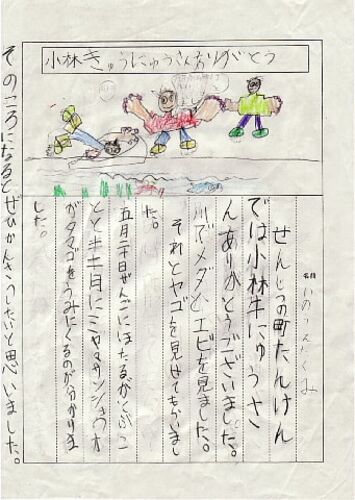 小林きゅうにゅうさんありがとう
名前 いのうえたくみ
せんじつの町たんけん
では小林牛にゅうさ
んありがとうございました。
川でメダカとエビを見ました。
それとヤゴを見せてもらいまし
た。
五月二十日ぜんごにほたるがとぶこ
とと十二月にミヤマサンショウオ
がタマゴをうみにくるのが分かりま
した。
そのころになるとぜひかんさつしたいと思いました。